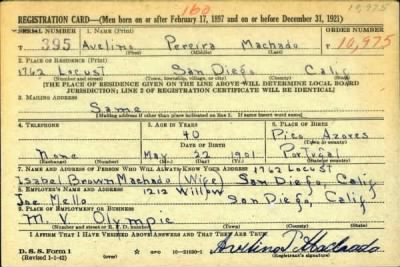 160
10,975
REGISTRATION CARD—(Men born on or after February 17, 1897 and on or before December 31, 1921)
SERIAL NUMBER 1. NAME (Print) ORDER NUMBER
T 395 Avelino Pereira Machado T 10,975
(First) (Middle) (Last)
2. PLACE OF RESIDENCE (Print)
1762 Locust San Diego Calif
(Number and street) (Town, township, village, or city) (County) (State)
[THE PLACE OF RESIDENCE GIVEN ON THE LINE ABOVE WILL DETERMINE LOCAL BOARD
JURISDICTION; LINE 2 OF REGISTRATION CERTIFICATE WILL BE IDENTICAL]
3. MAILING ADDRESS
Same
[Mailing address if other than place indicated on line 2. If same insert word same]
4. TELEPHONE 5. AGE IN YEARS 6. PLACE OF BIRTH
40 Pico, Azores
DATE OF BIRTH
None May 22 1901 Portugal
7. NAME AND ADDRESS OF PERSON WHO WILL ALWAYS KNOW YOUR ADDRESS 1762 Locust
Isabel Brown Machado (Wife) San Diego, Calif
8. EMPLOYER'S NAME AND ADDRESS 1212 Willow
Joe Mello San Diego, Calif
9. PLACE OF EMPLOYMENT OR BUSINESS
M. V. Olympic
(Number and street or R. F. D. number) (Town) (County) (State)
I AFFIRM THAT I HAVE VERIFIED ABOVE ANSWERS AND THAT THEY ARE TRUE.
D. S. S. Form 1
(Revised 1-1-42) GPO 16—21630-1
Avelino P. Machado